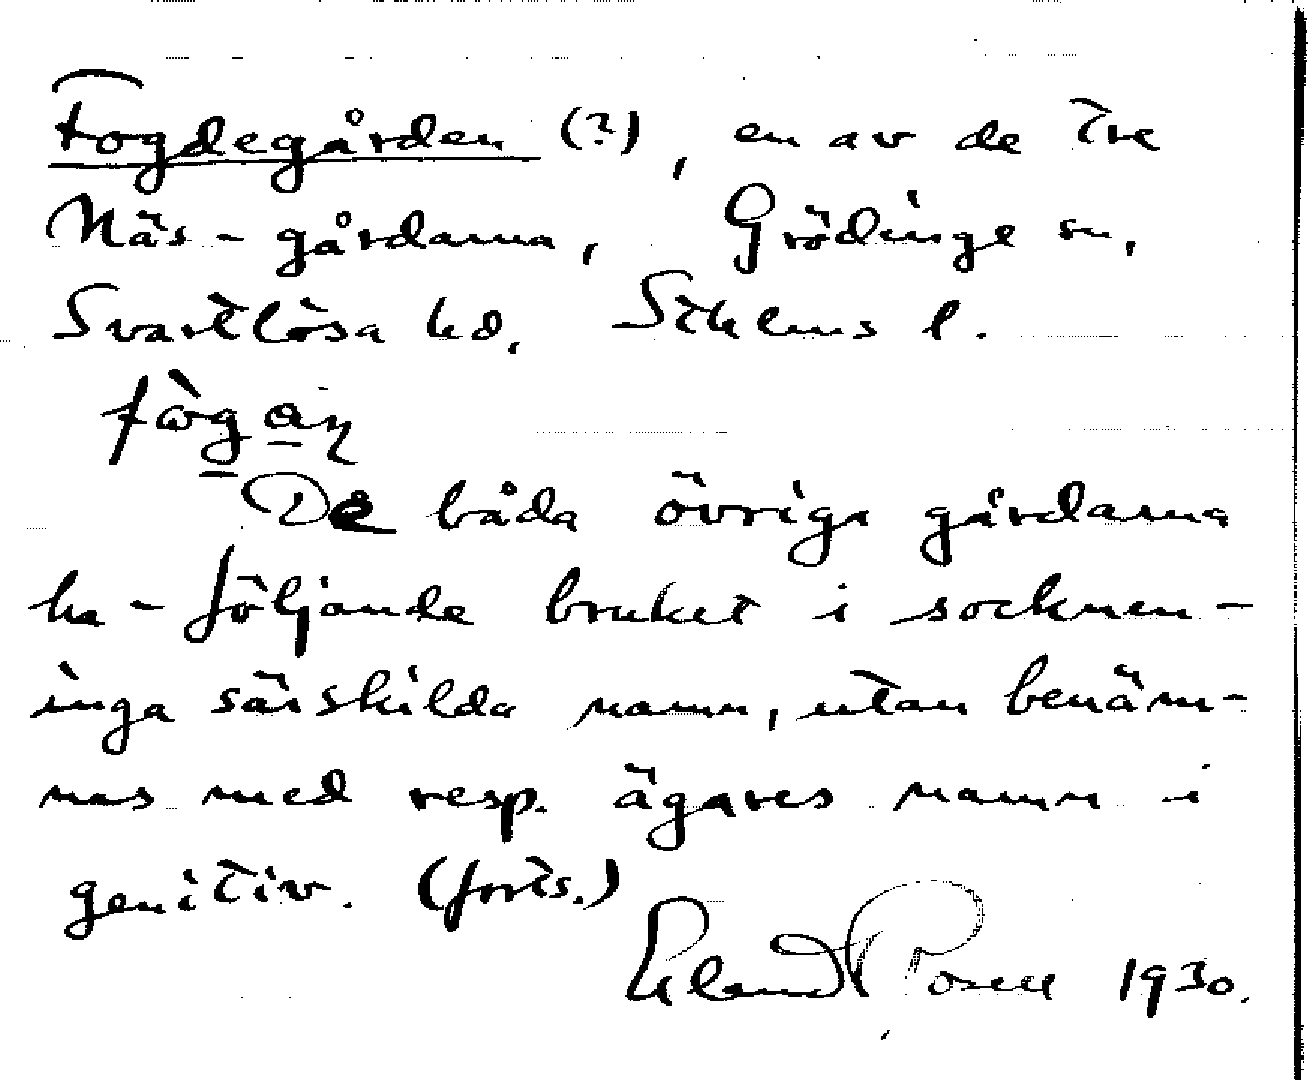 Fogdegården (?), en av de tre
Näs-gårdarna, Grödinge sn,
Svartlösa hd, Sthlms l.
De båda övriga gårdarna
ha - följande bruket i socknen -
inga särskilda namn, utan benäm-
nas med resp. ägares namn i
genitiv. (forts.)
Erland Rosell 1930.